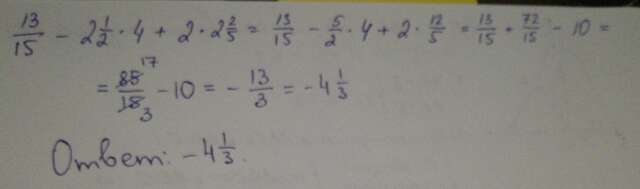 13/15 - 2 1/2 · 4 + 2 · 2 2/5 = 13/15 - 5/2 · 4 + 2 · 12/5 = 13/15 + 72/15 - 10 =
= 85 17/15 3 - 10 = - 13/3 = - 4 1/3
Ответ: - 4 1/3.